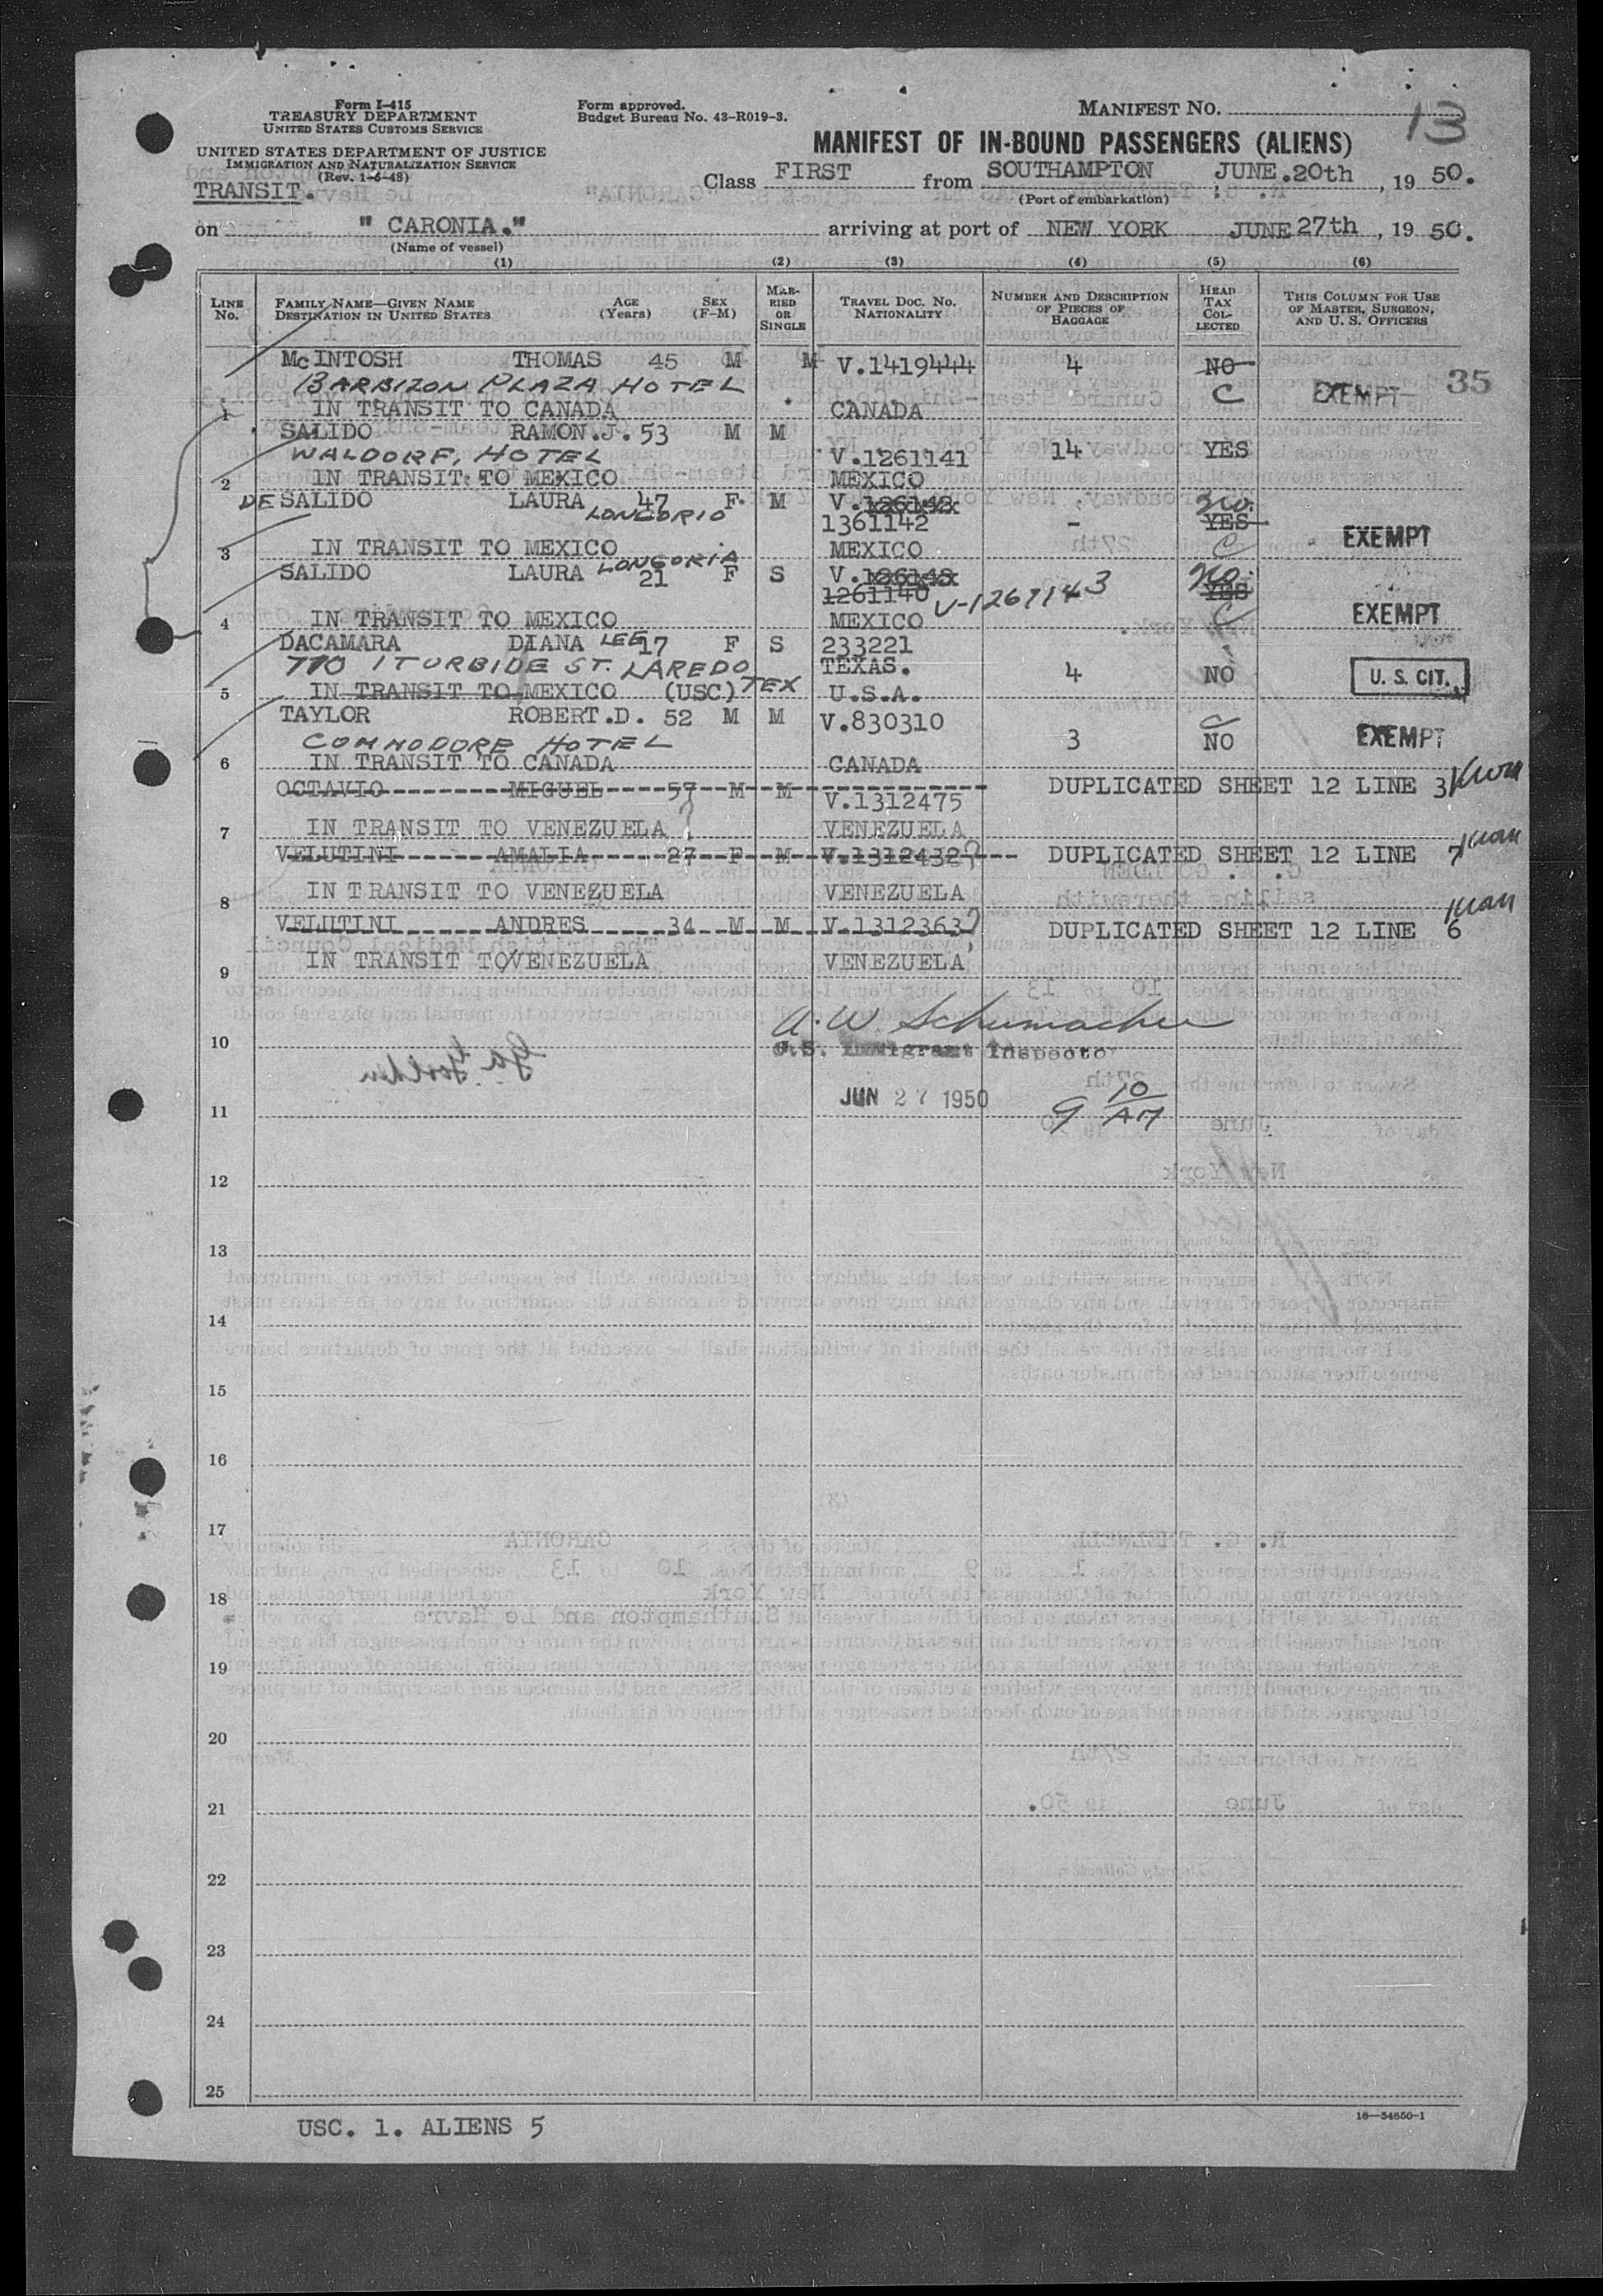 Form I-415
TREASURY DEPARTMENT
UNITED STATES CUSTOMS SERVICE
UNITED STATES DEPARTMENT OF JUSTICE
IMMIGRATION AND NATURALIZATION SERVICE
(Rev. 1-6-48)
TRANSIT.
Form approved.
Budget Bureau No. 43-R019-3.
MANIFEST NO. 13
MANIFEST OF IN-BOUND PASSENGERS (ALIENS)
Class FIRST from SOUTHAMPTON JUNE.20th, 19 50.
(Port of embarkation)
on " CARONIA." arriving at port of NEW YORK JUNE 27th, 19 50.
(Name of vessel)
(1) (2) (3) (4) (5) (6)
LINE No. FAMILY NAME—GIVEN NAME DESTINATION IN UNITED STATES AGE (Years) SEX (F-M) MARRIED OR SINGLE TRAVEL DOC. NO. NATIONALITY NUMBER AND DESCRIPTION OF PIECES OF BAGGAGE HEAD TAX COLLECTED THIS COLUMN FOR USE OF MASTER, SURGEON, AND U. S. OFFICERS
McINTOSH THOMAS 45 M M V.1419444 4 NO
BARBIZON PLAZA HOTEL C EXEMPT 35
1 IN TRANSIT TO CANADA CANADA
SALIDO RAMON.J. 53 M M
WALDORF, HOTEL V.1261141 14 YES
2 IN TRANSIT TO MEXICO MEXICO
DE SALIDO LAURA 47 F. M V.126142 NO.
LONGORIO 1361142 - YES EXEMPT
3 IN TRANSIT TO MEXICO MEXICO C
SALIDO LAURA LONGORIA 21 F S V.126143 NO.
1261140 V-1261143 YES
4 IN TRANSIT TO MEXICO MEXICO C EXEMPT
DACAMARA DIANA LEE 17 F S 233221
770 ITURBIDE ST. LAREDO TEX TEXAS. 4 NO U. S. CIT.
5 IN TRANSIT TO MEXICO (USC.) U.S.A.
TAYLOR ROBERT.D. 52 M M V.830310 C
COMMODORE HOTEL 3 NO EXEMPT
6 IN TRANSIT TO CANADA CANADA
OCTAVIO MIGUEL 57 M M V.1312475 DUPLICATED SHEET 12 LINE 3
7 IN TRANSIT TO VENEZUELA ? VENEZUELA
VELUTINI AMALIA 27 F M V.1312432? DUPLICATED SHEET 12 LINE 7
8 IN TRANSIT TO VENEZUELA VENEZUELA
VELUTINI ANDRES 34 M M V.1312363? DUPLICATED SHEET 12 LINE 6
9 IN TRANSIT TO VENEZUELA VENEZUELA
A. W. Schumacher
10 U.S. Immigrant Inspector
JUN 27 1950 9 10 AM
11
12
13
14
15
16
17
18
19
20
21
22
23
24
25
16—54650-1
USC. 1. ALIENS 5